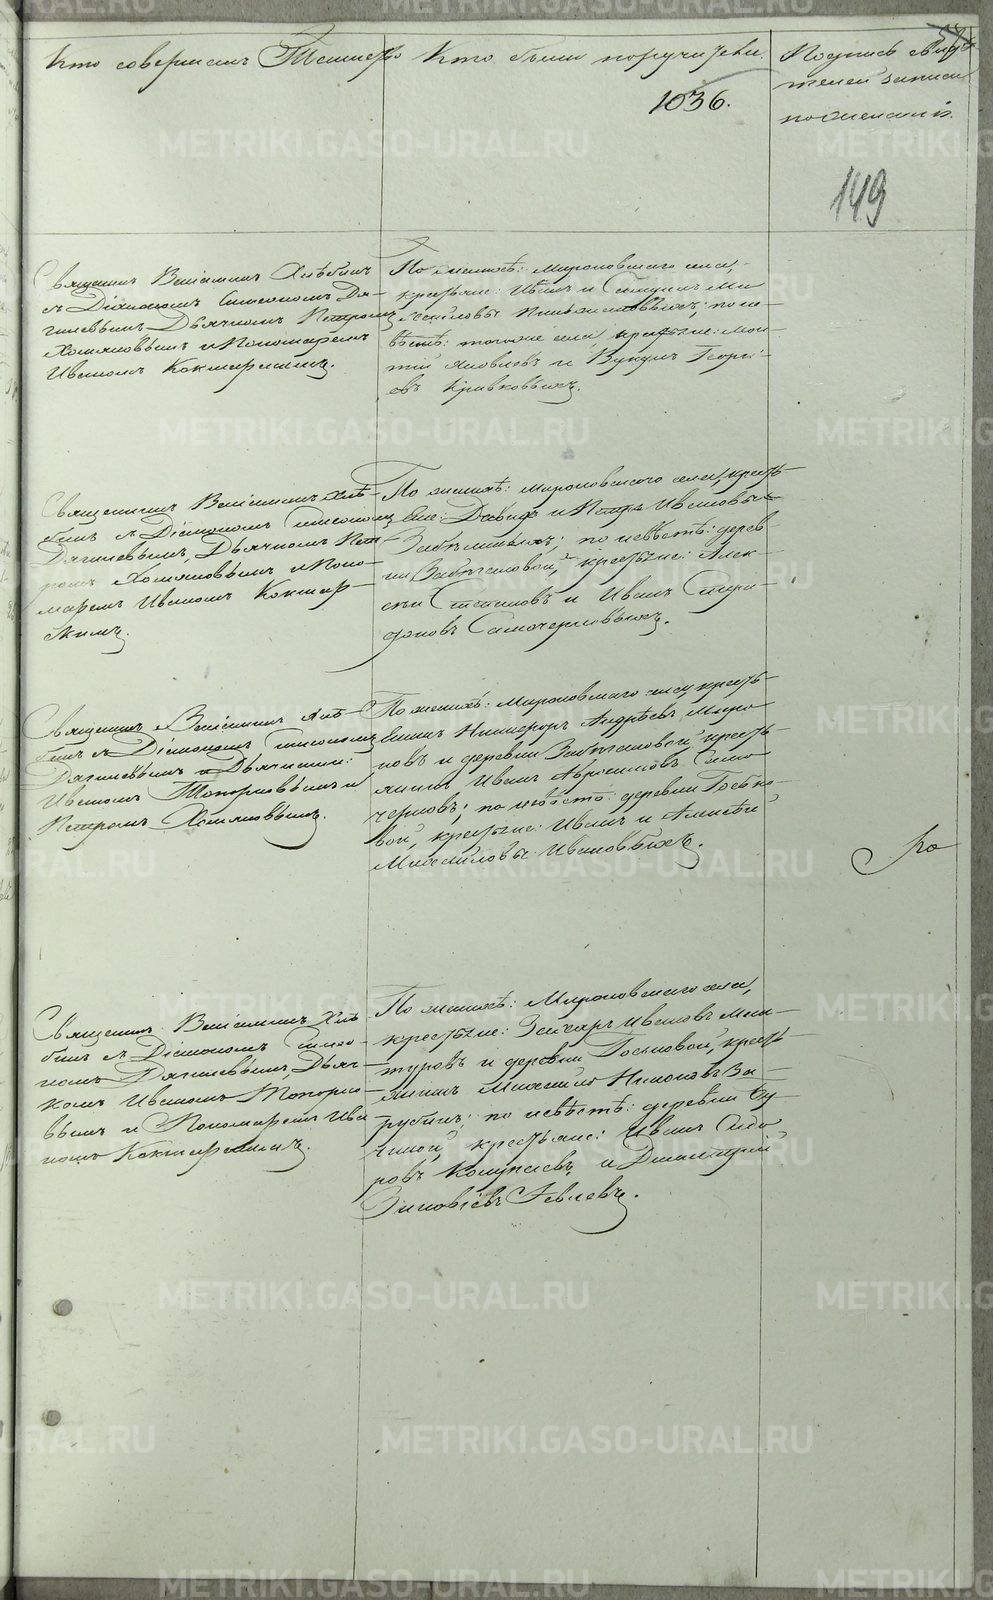 Кто совершалъ Таинство
Кто были поручители.
Подпись свидѣ-
телей записи
по желанію.
1036.
149
Священникъ Веніаминъ Хлѣбинъ
съ Діакономъ Симеономъ Дя-
гилевымъ Дьячкомъ Петромъ
Хомяковымъ и Пономаремъ
Иваномъ Кокшарскимъ.
По женихѣ: Мироновскаго села,
крестьяне: Иванъ и Симеонъ Ми-
хайловы; по не-
вѣстѣ: тогоже села, крестьяне:
Яковлевъ и Георгі-
евъ Кривковыхъ.
Священникъ Веніаминъ Хлѣ-
бинъ съ Діакономъ Симеономъ
Дягилевымъ, Дьячкомъ Пет-
ромъ Хомяковымъ и Поно-
маремъ Иваномъ Кокшар-
скимъ.
По женихѣ: Мироновскаго села, кресть-
яне: Давидъ и Петръ Ивановы
Забѣлиныхъ; по невѣстѣ: дерев-
ни крестьяне: Алек-
сѣй Степановъ и Иванъ Спири-
доновъ Самочерновыхъ.
Священникъ Веніаминъ Хлѣ-
бинъ съ Діакономъ Симеономъ
Дягилевымъ и Дьячками:
Иваномъ Топорковымъ и
Петромъ Хомяковымъ.
По женихѣ: Мироновскаго села, кресть-
янинъ Никифоръ Андрѣевъ Миро-
новъ и деревни кресть-
янинъ Иванъ Само-
черновъ; по невѣстѣ: деревни
крестьяне: Иванъ и Алексѣй
Михайловы Ивановыхъ.
По
Священникъ Веніаминъ Хлѣ-
бинъ съ Діакономъ Симео-
номъ Дягилевымъ, Дьяч-
комъ Иваномъ Топорко-
вымъ и Пономаремъ Ива-
номъ Кокшарскимъ.
По женихѣ: Мироновскаго села,
крестьяне: Захаръ Ивановъ Ман-
туровъ и деревни кресть-
янинъ Михайло Никоновъ
по невѣстѣ: деревни Бу-
чиной, крестьяне: Иванъ Сидо-
ровъ и Димитрій
Зиновіевъ